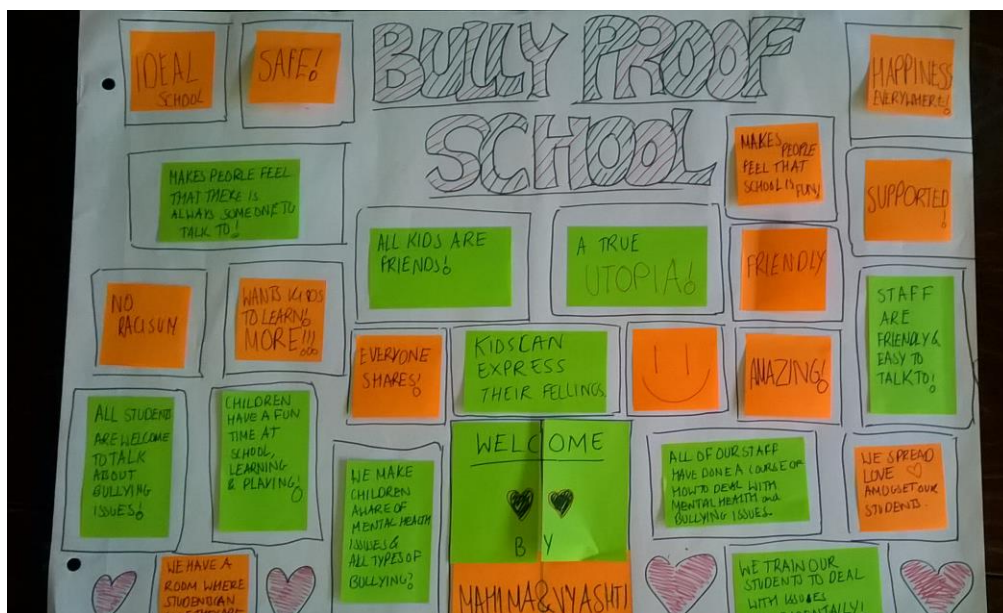 BULLY PROOF
SCHOOL
IDEAL
SCHOOL
SAFE!
HAPPINESS
EVERYWHERE!
MAKES PEOPLE
FEEL THAT
SCHOOL IS
FUN!
MAKES PEOPLE FEEL
THAT THERE IS
ALWAYS SOMEONE TO
TALK TO!
SUPPORTED
!
ALL KIDS ARE
FRIENDS!
A TRUE
UTOPIA!
FRIENDLY
NO
RACISUM
WANTS KIDS
TO LEARN!
MORE!!!
STAFF
ARE
FRIENDLY &
EASY TO
TALK TO!
EVERYONE
SHARES!
KIDS CAN
EXPRESS
THEIR FELLINGS.
AMAZING!
ALL STUDENTS
ARE WELCOME
TO TALK
ABOUT
BULLYING
ISSUES!
CHILDREN
HAVE A FUN
TIME AT
SCHOOL,
LEARNING
& PLAYING!
WE MAKE
CHILDREN
AWARE OF
MENTAL HEALTH
ISSUES &
ALL TYPES OF
BULLYING?
WELCOME
BY
MAHIMA & VYASHTI
ALL OF OUR STAFF
HAVE DONE A COURSE OF
HOW TO DEAL WITH
MENTAL HEALTH and
BULLYING ISSUES.
WE SPREAD
LOVE
AMOGSET OUR
STUDENTS.
WE HAVE A
ROOM WHERE
STUDENTS CAN
WE TRAIN OUR
STUDENTS TO DEAL
WITH ISSUES